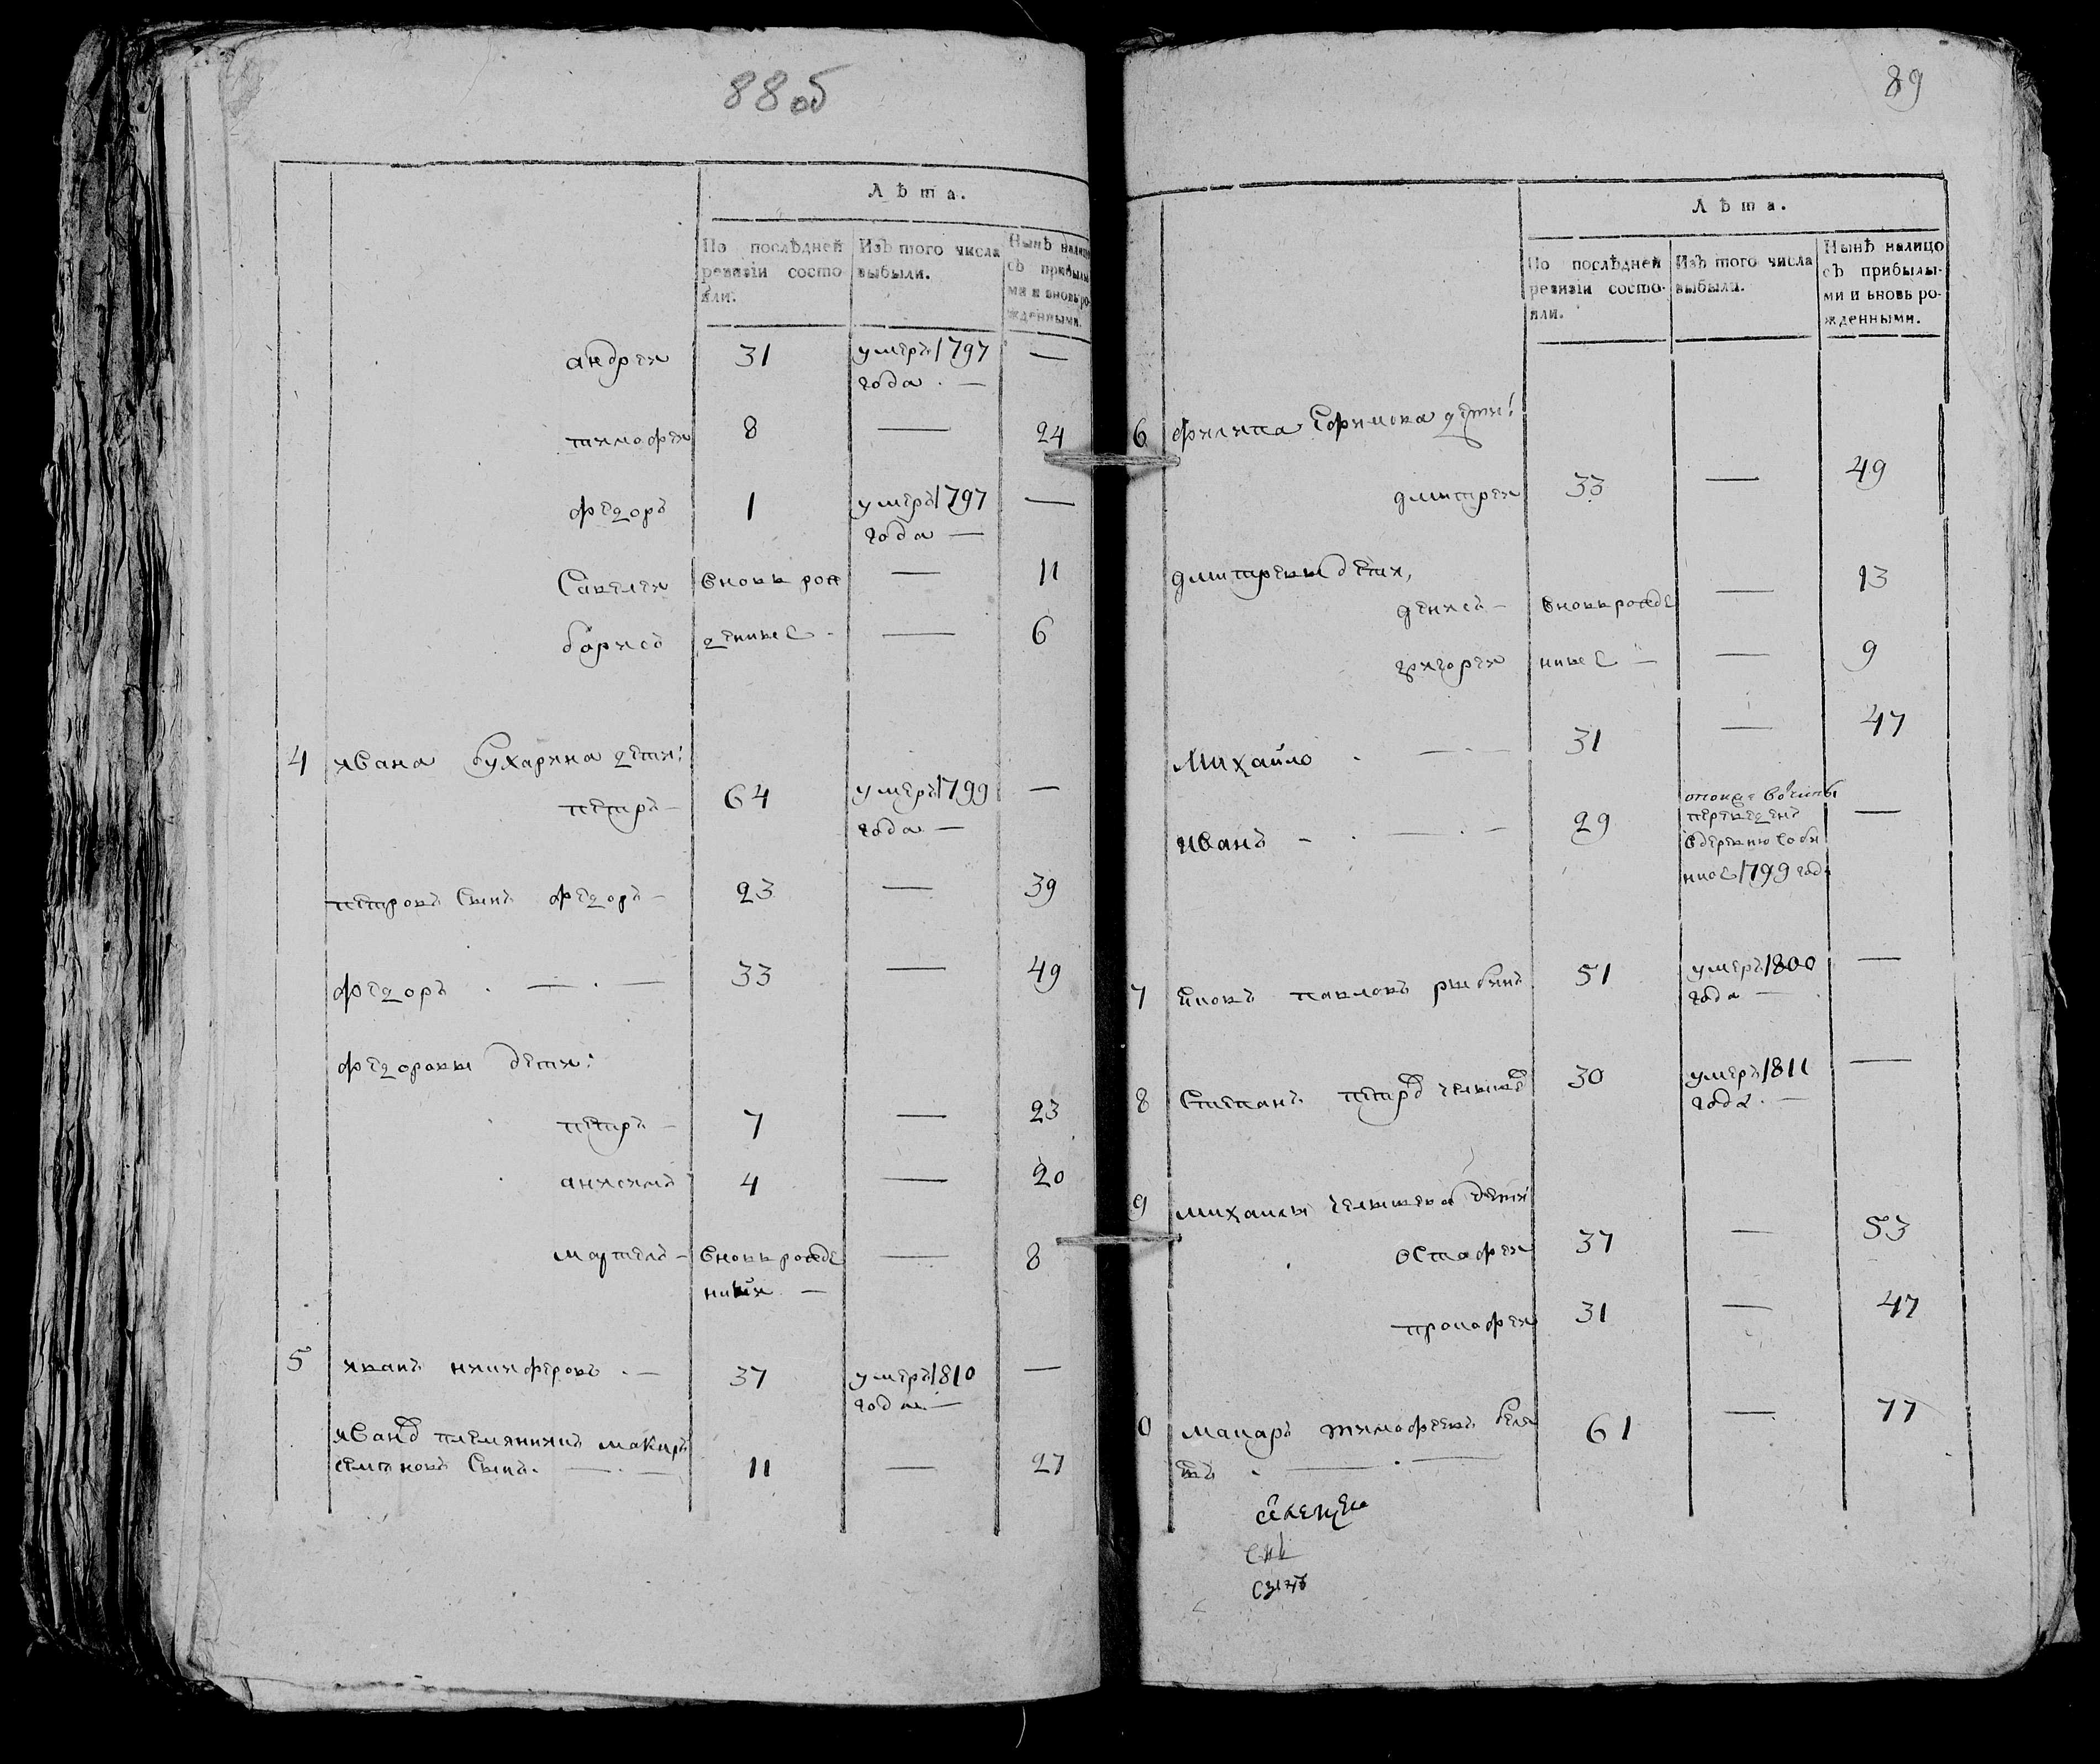 88 об
Лѣта.
По послѣдней ревизіи состояли.
Изъ того числа выбыли.
Нынѣ налицо съ прибылыми и вновь рожденными.
андреи 31 умеръ 1797 —
года . —
тимофеи 8 — 24
федоръ 1 умеръ 1797 —
года —
Савелеи вновь рож — 11
борисъ денные — 6
4 ивана бухарина дети:
петръ — 64 умеръ 1799 —
года —
петровъ сынъ федоръ — 23 — 39
федоръ . — . — 33 — 49
федоровы дети:
петръ — 7 — 23
анисимъ 4 — 20
мартенъ — вновь рожде — 8
нныи —
5 иванъ никифоровъ . — 37 умеръ 1810 —
года —
ивановъ племянникъ макаръ
семеновъ сынъ . — . — 11 — 27
89
Лѣта.
По послѣдней ревизіи состояли.
Изъ того числа выбыли.
Нынѣ налицо съ прибылыми и вновь рожденными.
6 филипа Ефимова дети:
дмитреи 33 — 49
дмитревы дети,
денисъ — вновь рожде — 13
григореи нные — — 9
Михаило . — . — 31 — 47
иванъ — . — . — 29 —
переведенъ
в деревню
1799 года
7 павловъ рыбинъ 51 умеръ 1800 —
года —
8 Степанъ петровъ челышев 30 умеръ 1811 —
года . —
9 михаилы челышева дети
остафеи 37 — 53
прокофеи 31 — 47
0 макаръ тимофеевъ 61 — 77